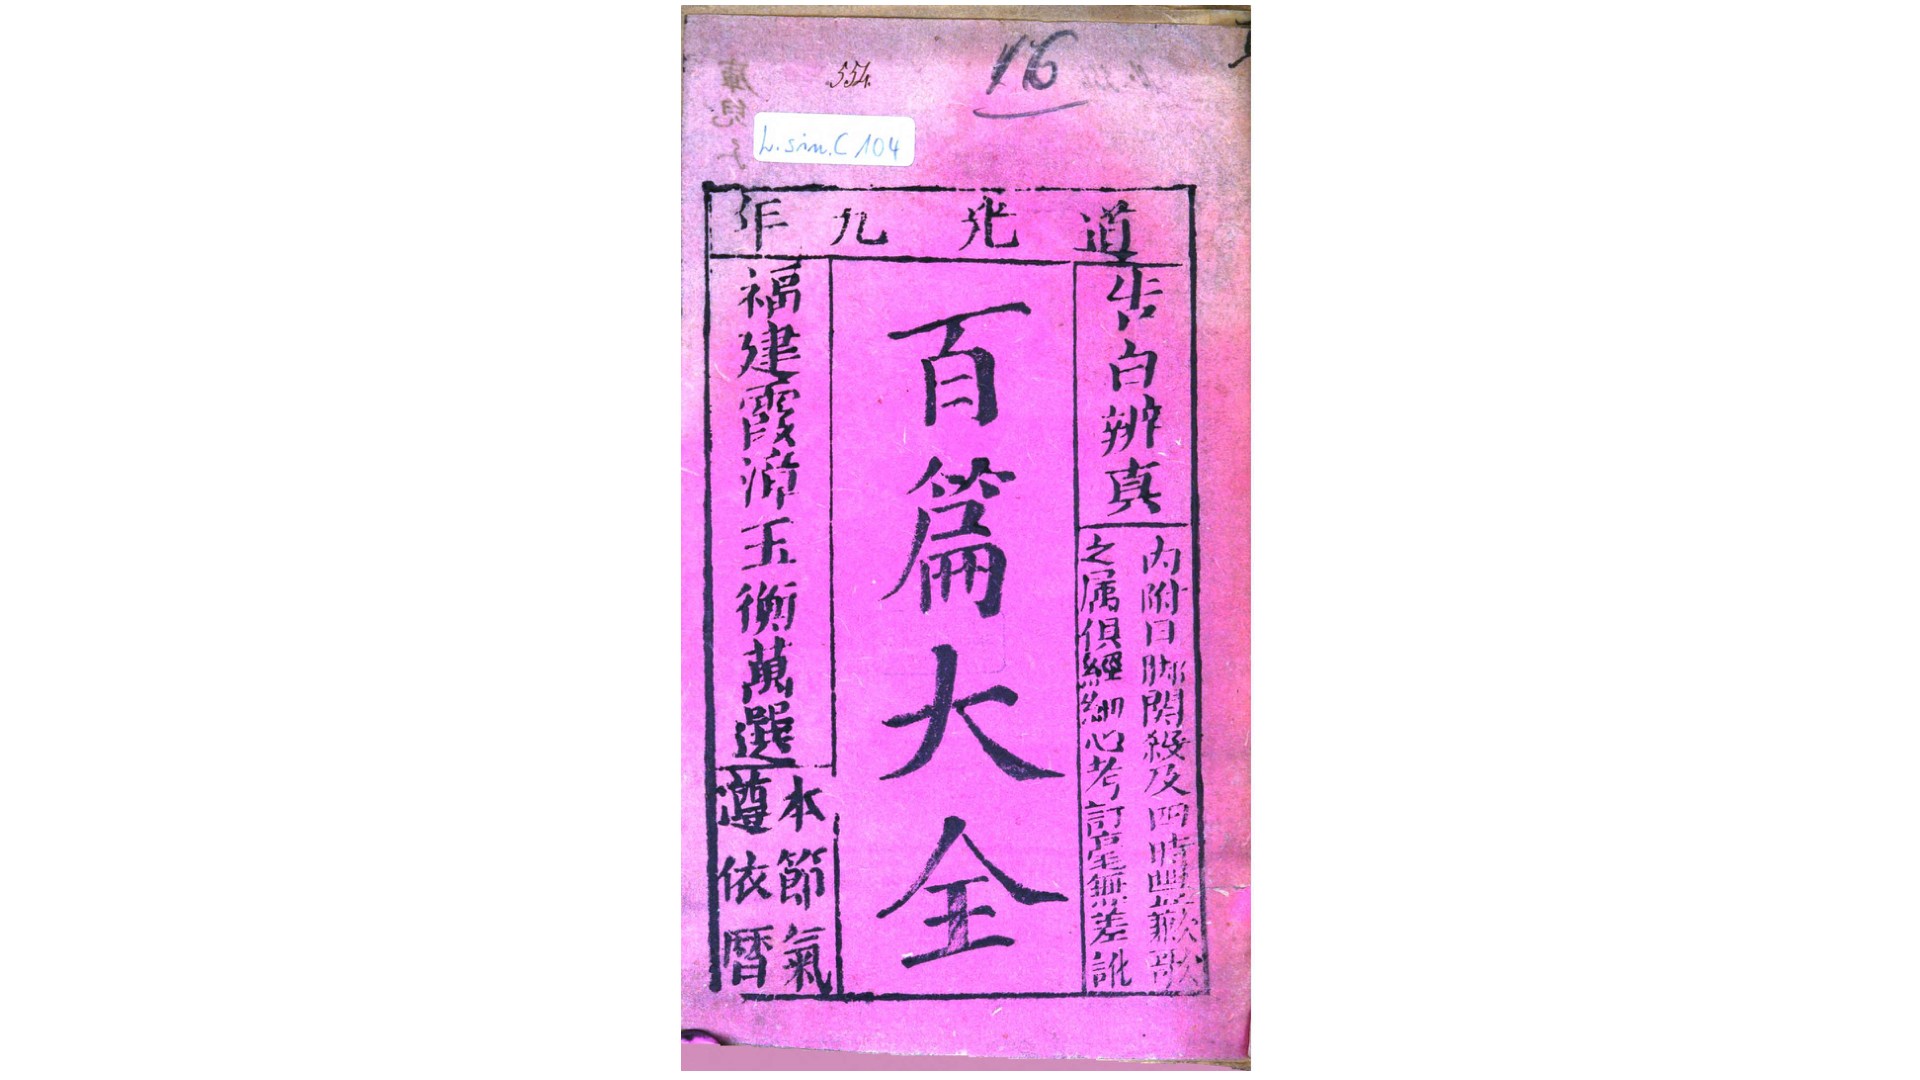 554.
16
L. sin. C 104
道光九年
告白辨真
內附日脚關殺及四時豐歉歌
之属俱經細心考訂毫無差訛
百篇大全
福建霞漳玉衡萬選
本節氣
遵依曆